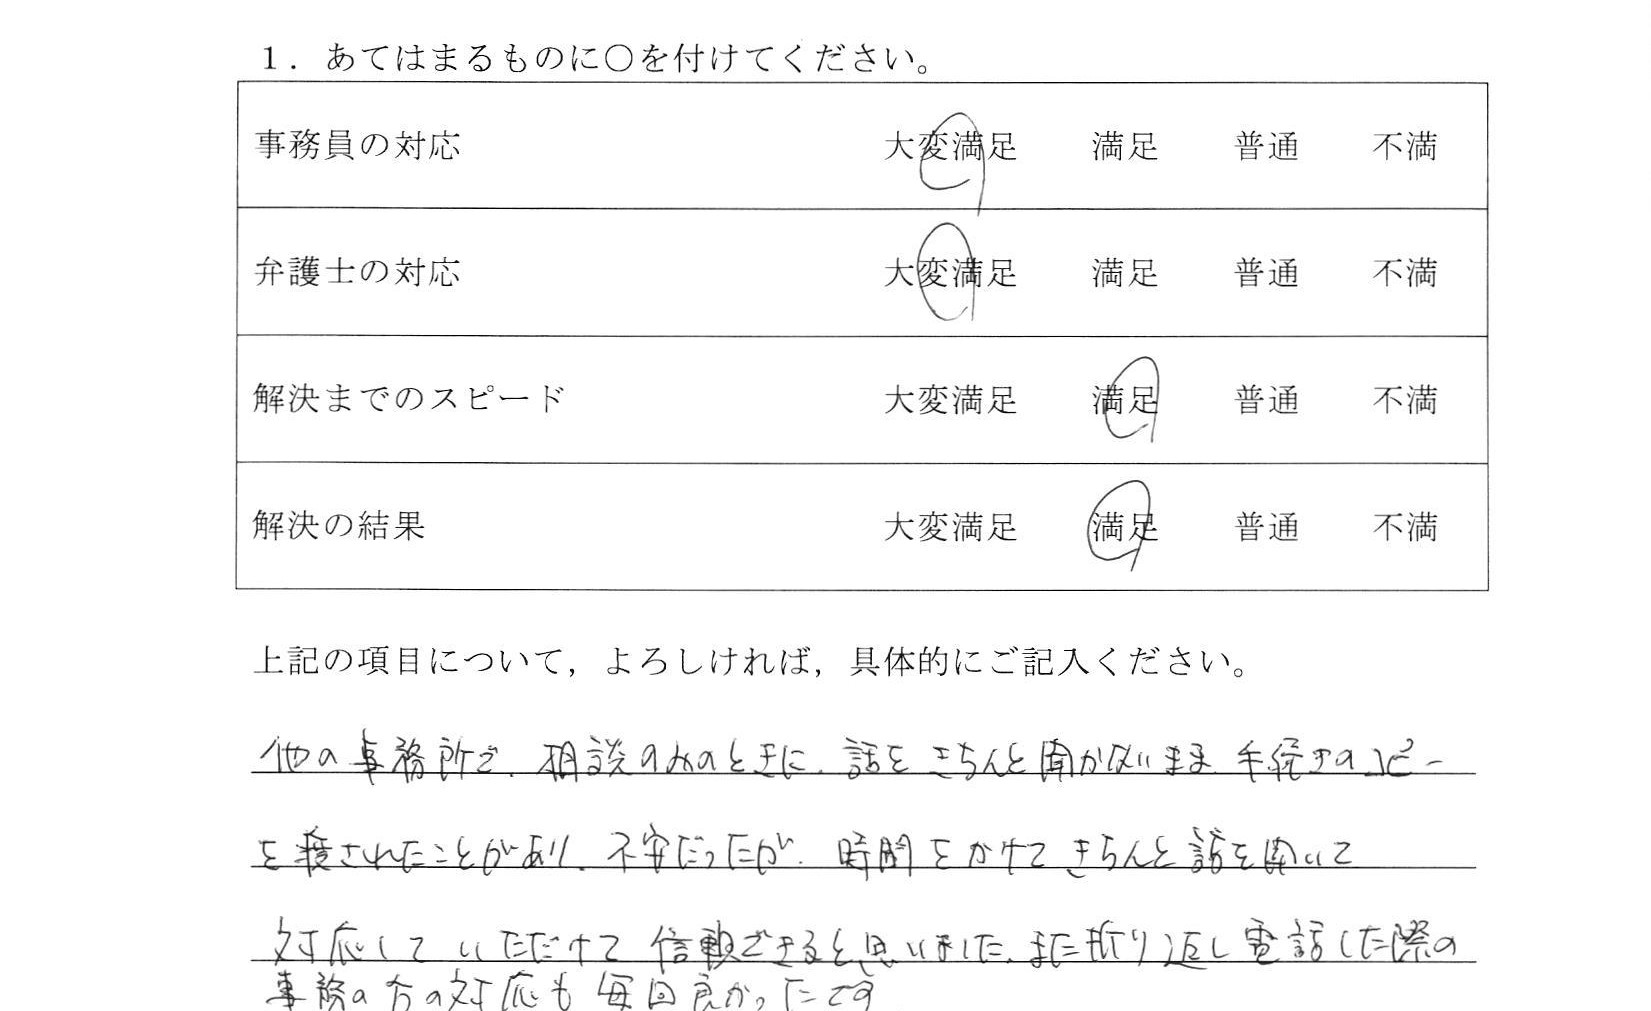 1．あてはまるものに○を付けてください。
事務員の対応 大変満足 満足 普通 不満
弁護士の対応 大変満足 満足 普通 不満
解決までのスピード 大変満足 満足 普通 不満
解決の結果 大変満足 満足 普通 不満
上記の項目について，よろしければ，具体的にご記入ください。
他の事務所で、相談のみのときに、話をきちんと聞かないまま、手続きのコピー
を渡されたことがあり、不安だったが、時間をかけてきちんと話を聞いて
対応していただけて信頼できると思いました。また折り返し電話した際の
事務の方の対応も毎回良かったです